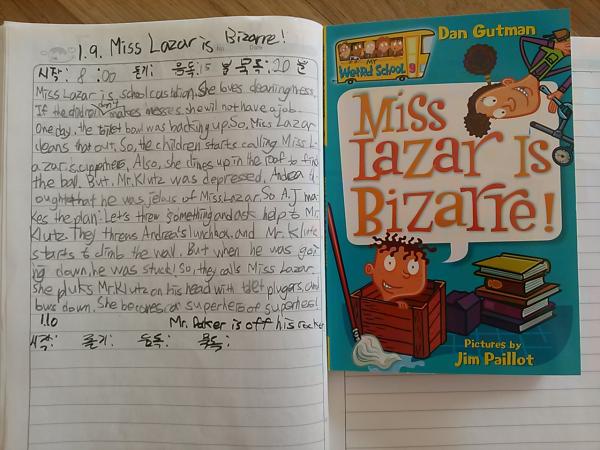 1.9. Miss Lazar is Bizarre!
시작: 8:00 듣기: 음독: 15분 묵독: 20분
Miss Lazar is school custodian. She loves cleaningness.
If the children don't makes messes, she will not have a job.
One day, the toilet bowl was backing up. So, Miss Lazar
cleans that out. So, the children starts calling Miss L-
azar is superhero. Also, she climes up in the roof to find
the ball. But, Mr. Klutz was depressed. Andrea th-
ought that he was jelous of Miss Lazar. So A.J ma-
kes the plan: Let's threw something and ask help to Mr.
Klutz. They throws Andrea's lunchbox, and Mr. Klutz
starts to climb the wall. But when he was goi-
ng down, he was stuck! So, they calls Miss Lazar.
She pluks Mr. Klutz on his head with toilet plugers, and
bows down. She becomes a superhero of superheros!
1.10 Mr. Docker is off his rocker
시작: 듣기: 음독: 묵독:
Dan Gutman
MY
WeiRd School 9
Miss
Lazar Is
Bizarre!
Pictures by
Jim Paillot